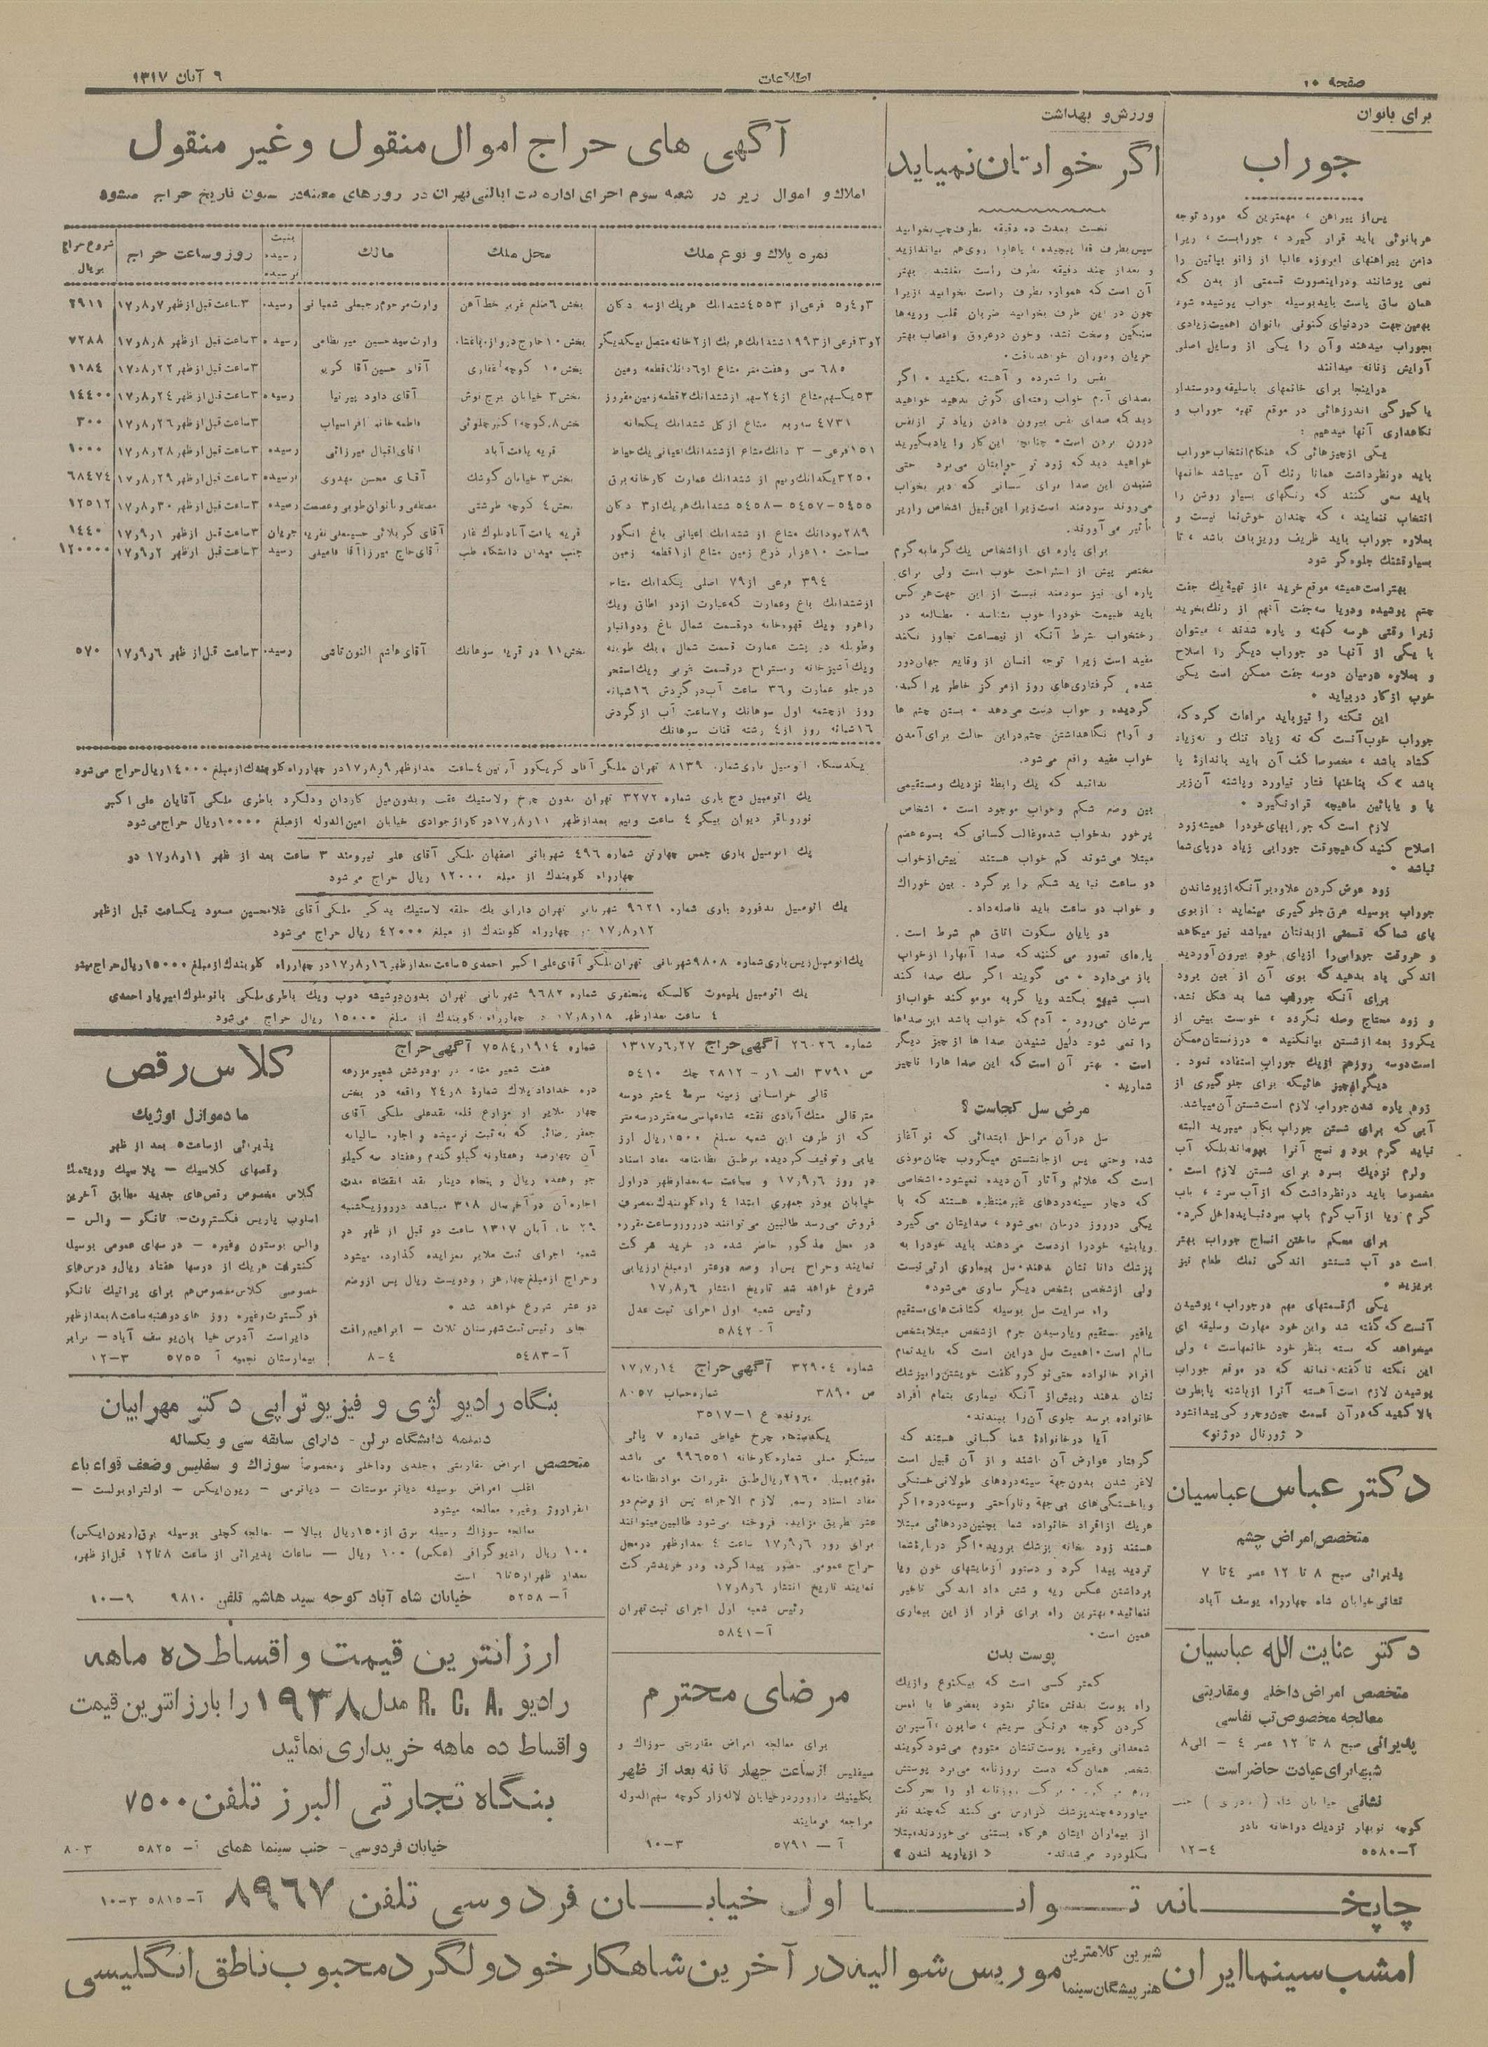 صفحه ۱۰
اطلاعات
۹ آبان ۱۳۱۷
برای بانوان
جوراب
پس از پیراهن ، مهمترین که مورد توجه
هر بانوئی باید قرار گیرد ، جورابست ، زیرا
دامن پیراهنهای امروزه غالبا از زانو بپائین را
نمی پوشانند و دراینصورت قسمتی از بدن که
همان ساق پاست باید بوسیله جوراب پوشیده شود
بهمین جهت در دنیای کنونی بانوان اهمیت زیادی
بجوراب میدهند و آن را یکی از وسایل اصلی
آرایش زنانه میدانند
دراینجا برای خانمهای باسلیقه و دوستدار
پاکیزگی اندرزهائی در موقع تهیه جوراب و
نگاهداری آنها میدهیم :
یکی از چیزهائی که هنگام انتخاب جوراب
باید درنظر داشت همانا رنگ آن میباشد خانمها
باید سعی کنند که رنگهای بسیار روشن را
انتخاب ننمایند ، که چندان خوش نما نیست و
بعلاوه جوراب باید ظریف و ریزباف باشد ، تا
بسیار قشنگ جلوه گر شود
بهتر است همیشه موقع خرید ، از تهیه یک جفت
چشم پوشیده و دویا سه جفت آنهم از رنگ بخرید
زیرا وقتی هر سه کهنه و پاره شدند ، میتوان
با یکی از آنها دو جوراب دیگر را اصلاح
و بعلاوه درمیان دوسه جفت ممکن است یکی
خوب از کار دربیاید •
این نکته را نیز باید مراعات کرد که
جوراب خوب آنست که نه زیاد تنگ و نه زیاد
گشاد باشد ، مخصوصا کف آن باید باندازهٔ پا
باشد که بناخنها فشار نیاورد و پاشنه آن زیر
پا و یا پائین ماهیچه قرار نگیرد •
لازم است که جورابهای خود را همیشه زود
اصلاح کنید که هیچوقت جورابی زیاد درپای شما
نباشد •
زود عوض کردن علاوه بر آنکه از پوشاندن
جوراب بوسیله عرق جلوگیری مینماید : از بوی
پای شما که قسمتی از بدنتان میباشد نیز میکاهد
و هروقت جورابی را از پای خود بیرون آوردید
اندکی باد بدهید که بوی آن از بین برود
برای آنکه جوراب شما بد شکل نشد
و زود محتاج وصله نگردد ، خوبست بیش از
یکروز بعد از شستن بپا نکنید • در زمستان ممکن
است دوسه روز هم از یک جوراب استفاده نمود .
دیگر از چیز هائیکه برای جلوگیری از
زود پاره شدن جوراب لازم است شستن آن میباشد.
آبی که برای شستن جوراب بکار میبرید البته
نباید گرم بود و نسج آنرا بهم بلکه آب
ولرم نزدیک بسرد برای شستن لازم است •
مخصوصا باید درنظر داشت که از آب سرد ، بآب
گرم و یا از آب گرم بآب سرد نباید داخل کرد •
برای محکم ساختن انساج جوراب بهتر
است در آب شستشو اندکی نمک طعام نیز
بریزید •
یکی از قسمتهای مهم در جوراب ، پوشیدن
آنست که گفته شد و این خود مهارت و سلیقه ای
میخواهد که بسته بنظر خود خانمهاست ، ولی
این نکته ناگفته نماند که در موقع جوراب
پوشیدن لازم است آهسته آنرا از پاشنه پا بطرف
بالا کشید که در آن قسمت چین و چروکی پیدا نشود
« ژورنال دوژنو »
دکتر عباس عباسیان
متخصص امراض چشم
پذیرائی صبح ۸ تا ۱۲ عصر ۴ تا ۷
نشانی خیابان شاه چهارراه یوسف آباد
دکتر عنایت الله عباسیان
متخصص امراض داخلی و مقاربتی
معالجه مخصوص تب نفاسی
پذیرائی صبح ۸ تا ۱۲ عصر ۴ - الی ۸
شبها برای عیادت حاضر است
کوچه نوبهار نزدیک دواخانه نادر
آ-۵۵۸۰ ۴-۱۲
ورزش و بهداشت
اگر خوابتان نمیاید
نخست بمدت ده دقیقه بطرف چپ بخوابید
سپس بطرف قفا پیچیده ، پاها را روی هم بیاندازید
و بعد از چند دقیقه بطرف راست بغلتید . بهتر
آن است که همواره بطرف راست بخوابید زیرا
چون در این طرف بخوابید ضربان قلب و ریه ها
سنگین و سخت نشده و خون در عروق و اعصاب بهتر
جریان و دوران خواهد یافت •
نفس را شمرده و آهسته بکشید • اگر
بصدای آدم خواب رفته ای گوش بدهید خواهید
دید که صدای نفس بیرون دادن زیاد تر از نفس
درون بردن است • چنانچه این کار را یاد بگیرید
خواهید دید که زود تر خوابتان می برد حتی
شنیدن این صدا برای کسانی که دیر بخواب
می روند سودمند است زیرا این قبیل اشخاص را زیر
تأثیر می آورد .
برای پاره ای از اشخاص یک گرمابه گرم
مختصر پیش از استراحت خوب است ولی برای
پاره ای نیز سودمند نیست از این جهت هر کس
باید طبیعت خود را خوب بشناسد • مطالعه در
رختخواب بشرط آنکه از نیمساعت تجاوز نکند
مفید است زیرا توجه انسان از وقایع جهان دور
شده و گرفتاری های روز از مرکز خاطر پراکنده
گردیده و خواب دست می دهد • بستن چشم ها
و آرام نگاهداشتن چشم در این حالت برای آمدن
خواب مفید واقع می شود.
بدانید که یک رابطهٔ نزدیک و مستقیمی
بین وضع شکم و خواب موجود است • اشخاص
پرخور بدخواب شده و غالب کسانی که بسوء هضم
مبتلا می شوند کم خواب هستند پیش از خواب
دو ساعت نباید شکم را پر کرد . بین خوراک
و خواب دو ساعت باید فاصله داد.
در پایان سکوت اتاق هم شرط است .
پاره ای تصور می کنند که صدا آنها را از خواب
باز می دارد • می گویند اگر سگ صدا کند
اسب شیهه بکشد و یا گربه مومو کند خواب از
سرشان می رود • آدم که خواب باشد این صداها
را نمی شنود دلیل شنیدن صداها از چیز دیگر
است • بهتر آن است که این صدا ها را ناچیز
شمارید •
مرض سل کجاست ؟
سل در آن مراحل ابتدائی که نو آغاز
شده و حتی پس از جانشستن میکروب چنان موذی
است که علائم و آثار آن دیده نمیشود • اشخاصی
که دچار سینه دردهای غیر منتظره هستند که با
یکی دو روز درمان نمی شود ، صدایشان می گیرد
و یا بنیه خود را از دست می دهند باید خود را به
پزشک دانا نشان بدهند • سل بیماری ارثی نیست
ولی از شخصی بشخص دیگر ساری می شود •
راه سرایت سل بوسیله کثافت های مستقیم
یا غیر مستقیم و یا رسیدن جرم از شخص مبتلا بشخص
سالم است • اهمیت سل در این است که باید تمام
افراد خانواده حتی نوکر و کلفت خویشتن را بپزشک
نشان بدهند و پیش از آنکه بیماری بتمام افراد
خانواده برسد جلوی آن را ببندند •
آیا در خانوادهٔ شما کسانی هستند که
گرفتار عوارض آن باشند و از آن قبیل است
لاغر شدن بدون جهة سینه دردهای طولانی خستگی
و یا خستگی های بی جهة و ناراحتی و سینه درد • اگر
هریک از افراد خانواده شما بچنین دردهائی مبتلا
هستند زود بخانه پزشک بروید • اگر دربارهٔ شما
تردید پیدا کرد و دستور آزمایشهای خون و یا
برداشتن عکس ریه و شش داد اندکی تاخیر
ننمائید • بهترین راه برای فرار از این بیماری
همین است •
پوست بدن
کمتر کسی است که بیکنوع و از یک
راه پوست بدنش متاثر نشود بعضی ها با لمس
کردن گوجه فرنگی سریشم ، صابون ، آسپرین
شمعدانی و غیره پوست تنشان متورم می شود گویند
میاورد • چند پزشک گزارش می کنند که چند نفر
از بیماران ایشان هرگاه بستنی می خوردند مبتلا
« از پاریز لندن »
آگهی های حراج اموال منقول و غیر منقول
املاک و اموال زیر در شعبه سوم اجرای اداره ثبت ایالتی تهران در روزهای معینه در ستون تاریخ حراج میشود
نمره پلاک و نوع ملک | محل ملک | مالک | بثبت رسیده نرسیده | روز و ساعت حراج | شروع حراج بریال
۳و۴و۵ فرعی از ۴۵۵۳ ششدانگ هریک از سه دکان | بخش ۶ ضلع غربی خط آهن | وارث مرحوم رجبعلی شعبانی | رسیده | ۳ ساعت قبل از ظهر ۱۷٫۸٫۷ | ۲۹۱۱
۲و۳ فرعی از ۱۹۹۳ ششدانگ هریک از ۲ خانه متصل بیکدیگر | بخش ۱۰ خارج دروازه | وارث سید حسین میرنظامی | رسیده | ۳ ساعت قبل از ظهر ۱۷٫۸٫۸ | ۷۲۸۸
۶۸۵ سی و هفت متر مشاع از ۶ دانگ قطعه زمین | بخش ۱۰ کوچه غفاری | آقای حسین آقا کریم | ۳ ساعت قبل از ظهر ۱۷٫۸٫۲۲ | ۱۱۸۴
۵۳ یکسهم مشاع از ۲۴ سهم از ششدانگ ۲ قطعه زمین مفروز | بخش ۳ خیابان برج نوش | آقای داود پیرنیا | رسیده | ۳ ساعت قبل از ظهر ۱۷٫۸٫۲۴ | ۱۴۴۰۰
۴۷۳۱ سه ربع مشاع از کل ششدانگ یکخانه | بخش ۸ کوچه | فاطمه خانم افراسیاب | ۳ ساعت قبل از ظهر ۱۷٫۸٫۲۶ | ۳۰۰
۱۵۱ فرعی - ۳ دانگ مشاع از ششدانگ اعیانی یک حیاط | قریه یافت آباد | آقای اقبال میرزائی | رسیده | ۳ ساعت قبل از ظهر ۱۷٫۸٫۲۸ | ۱۰۰۰
۳۲۵۰ یکدانگ و نیم از ششدانگ عمارت کارخانه برق | بخش ۳ خیابان گوشک | آقای محسن مهدوی | نرسیده | ۳ ساعت قبل از ظهر ۱۷٫۸٫۲۹ | ۶۸۴۷۴
۵۴۵۵-۵۴۵۷-۵۴۵۸ ششدانگ هریک از ۳ دکان | بخش ۴ کوچه طرشتی | مصطفی و بانوان طوبی و عصمت | رسیده | ۳ ساعت قبل از ظهر ۱۷٫۸٫۳۰ | ۱۲۵۱۲
۲۸۹ دو دانگ مشاع از ششدانگ اعیانی باغ انگور | قریه یافت آباد بلوک غار | آقای کربلائی حسینعلی | جریان | ۳ ساعت قبل از ظهر ۱۷٫۹٫۱ | ۱۴۴۰
مساحت ۱۰ هزار ذرع زمین مشاع از ۱ قطعه زمین | جنب میدان دانشگاه طب | آقای حاج میرزا آقا | رسیده | ۳ ساعت قبل از ظهر ۱۷٫۹٫۲ | ۱۲۰۰۰۰
۳۹۴ فرعی از ۷۹ اصلی یکدانگ مشاع
از ششدانگ باغ و عمارت که عبارت از دو اطاق و یک
راهرو و یک قهوه خانه در قسمت شمال باغ و دو انبار
و طویله در پشت عمارت قسمت شمال و یک طویله
و یک آشپزخانه و مستراح در قسمت غربی و یک استخر
در جلو عمارت و ۳۶ ساعت آب در گردش ۱۶ شبانه
روز از چشمه اول سوهانک و ۷ ساعت آب از گردش
۱۶ شبانه روز از ۴ رشته قنات سوهانک | بخش ۱۱ در قریه سوهانک | آقای هاشم النون قاشی | رسیده | ۳ ساعت قبل از ظهر ۱۷٫۹٫۶ | ۵۷۰
یکدستگاه اتومبیل باری شماره ۸۱۳۹ تهران ملکی آقای گریگور آرتین ۴ ساعت بعد از ظهر ۱۷٫۸٫۹ در چهارراه گلوبندک از مبلغ ۱۴۰۰۰ ریال حراج می شود
یک اتومبیل دج باری شماره ۳۲۷۲ تهران بدون چرخ و لاستیک عقب و بدون میل گاردان و دلکو و باطری ملکی آقایان علی اکبر
نوروز باقر دیوان بیگی ۴ ساعت و نیم بعد از ظهر ۱۷٫۸٫۱۱ در گاراژ جوادی خیابان امین الدوله از مبلغ ۱۰۰۰۰ ریال حراج می شود
یک اتومبیل باری جمس چهارتن شماره ۴۹۶ شهربانی اصفهان ملکی آقای علی نیرومند ۳ ساعت بعد از ظهر ۱۷٫۸٫۱۱ در
چهارراه گلوبندک از مبلغ ۱۲۰۰۰ ریال حراج می شود
یک اتومبیل بدفورد باری شماره ۹۶۲۱ شهربانی تهران دارای یک حلقه لاستیک یدکی ملکی آقای غلامحسین مسعود یکساعت قبل از ظهر
۱۷٫۸٫۱۲ در چهارراه گلوبندک از مبلغ ۴۲۰۰۰ ریال حراج می شود
یک اتومبیل زیس باری شماره ۹۸۰۸ شهربانی تهران ملکی آقای علی اکبر احمدی ۵ ساعت بعد از ظهر ۱۷٫۸٫۱۶ در چهارراه گلوبندک از مبلغ ۱۵۰۰۰ ریال حراج میشود
یک اتومبیل پلیموت کالسکه پنجنفری شماره ۹۶۸۲ شهربانی تهران بدون دو شیشه درب و یک باطری ملکی بانو ملوک امیریار احمدی
۴ ساعت بعد از ظهر ۱۷٫۸٫۱۸ در چهارراه گلوبندک از مبلغ ۱۵۰۰۰ ریال حراج می شود
شماره ۲۶۰۲۶ آگهی حراج ۱۳۱۷٫۶٫۲۷
ص ۳۷۹۱ الف ار - ۲۸۱۲ چک ۵۴۱۰
قالی خراسانی زمینه سرمهٔ ۴ متر دوسه
متر قالی مشک آبادی نقشه شاه عباسی سه متر در سه متر
که از طرف این شعبه بمبلغ ۱۵۰۰ ریال ارز
یابی و توقیف گردیده بر طبق نظامنامه مفاد اسناد
در روز ۱۷٫۹٫۶ و ساعت سه بعد از ظهر در اول
خیابان بوذرجمهری ابتدا ۴ راه گلوبندک بمعرض
فروش می رسد طالبین می توانند در روز و ساعت مقرره
در محل مذکور حاضر شده در خرید شرکت
نمایند و حراج پس از وضع دو عشر از مبلغ ارزیابی
شروع خواهد شد تاریخ انتشار ۱۷٫۸٫۶
رئیس شعبه اول اجرای ثبت عدل
آ-۵۸۴۲
شماره ۳۲۹۰۴ آگهی حراج ۱۷٫۷٫۱۴
ص ۳۸۹۰ شماره حساب ۸۰۵۷
پرونده ع ۱-۳۵۱۷
یکدستگاه چرخ خیاطی شماره ۷ پائی
سینگر مبلی شماره کارخانه ۹۹۶۵۵۱ می باشد
مقوم بمبلغ ۲۱۶۰ ریال طبق مقررات مواد نظامنامه
مفاد اسناد رسمی لازم الاجراء پس از وضع دو
عشر بطریق مزایده فروخته می شود طالبین میتوانند
برای روز ۱۷٫۹٫۶ ساعت ۴ بعد از ظهر در محل
حراج عمومی حضور پیدا کرده و در خرید شرکت
نمایند تاریخ انتشار ۱۷٫۸٫۶
رئیس شعبه اول اجرای ثبت تهران
آ-۵۸۴۱
مرضای محترم
برای معالجه امراض مقاربتی سوزاک و
سیفلیس از ساعت چهار تا نه بعد از ظهر
بکلینیک داروو در خیابان لاله زار کوچه سهم الدوله
مراجعه فرمایند
آ - ۵۷۹۱ ۳-۱۰
شماره ۷۵۸۴٫۱۹۱۴ آگهی حراج
هفت شعیر مشاع از نود و شش شعیر مزرعه
دره خداداد پلاک شمارهٔ ۲۴٫۸ واقعه در بخش
چهار ملایر از مزارع قلعه نقد علی ملکی آقای
جعفر رضائی که به ثبت نرسیده و اجاره سالیانه
آن چهارصد و هفتاد و نه کیلو گندم و هفتاد سه کیلو
جو و هفده ریال و پنجاه دینار نقد انقضاء مدت
اجاره آن در آخر سال ۳۱۸ میباشد در روز یکشنبه
۲۹ ماه آبان ۱۳۱۷ ساعت دو قبل از ظهر در
شعبه اجرای ثبت ملایر بمزایده گذارده میشود
و حراج از مبلغ چهار هزار و دویست ریال پس از وضع
دو عشر شروع خواهد شد •
بجای رئیس ثبت شهرستان ثلاث - ابراهیم رافت
آ-۵۴۸۳ ۴-۸
کلاس رقص
مادموازل اوژیک
پذیرائی از ساعت ۵ بعد از ظهر
رقصهای کلاسیک - پلاسیک و ریتمیک
کلاس مخصوص رقصهای جدید مطابق آخرین
اسلوب پاریس فکستروت - تانگو - والس -
والس بوستون و غیره - درسهای عمومی بوسیله
کنترات هریک از درسها هفتاد ریال و درس های
خصوصی کلاس مخصوص هم برای پراتیک تانگو
فوکستروت و غیره روز های دوشنبه ساعت ۸ بعد از ظهر
دایر است آدرس خیابان یوسف آباد - برابر
بیمارستان نجمیه آ ۵۷۵۵ ۳-۱۲
بنگاه رادیولژی و فیزیوتراپی دکتر مهرابیان
دیپلمه دانشگاه برلن - دارای سابقه سی و یکساله
متخصص امراض مقاربتی و جلدی و داخلی و مخصوصاً سوزاک و سفلیس و ضعف قواء باء
اغلب امراض بوسیله دیاترموستات - دیاترمی - ریون ایکس - اولتراویولت -
انفراروژ و غیره معالجه میشود
معالجه سوزاک وسیله برق از ۱۵۰ ریال ببالا - معالجه کچلی بوسیله برق (ریون ایکس)
۱۰۰ ریال رادیوگرافی (عکس) ۱۰۰ ریال - ساعات پذیرائی از ساعت ۸ تا ۱۲ قبل از ظهر،
بعد از ظهر از ۵ تا ۶ است
آ-۵۲۵۸ خیابان شاه آباد کوچه سید هاشم تلفن ۹۸۱۰ ۹-۱۰
ارزانترین قیمت و اقساط ده ماهه
رادیو R. C. A. مدل ۱۹۳۸ را بارزانترین قیمت
و اقساط ده ماهه خریداری نمائید
بنگاه تجارتی البرز تلفن ۷۵۰۰
خیابان فردوسی - جنب سینما همای آ- ۵۸۲۵ ۳-۸
چاپخانه توانا اول خیابان فردوسی تلفن ۸۹۶۷ آ-۵۸۱۵ ۳-۱۰
امشب سینما ایران شیرین کلامترین هنرپیشگان سینما موریس شوالیه در آخرین شاهکار خود ولگرد محبوب ناطق انگلیسی